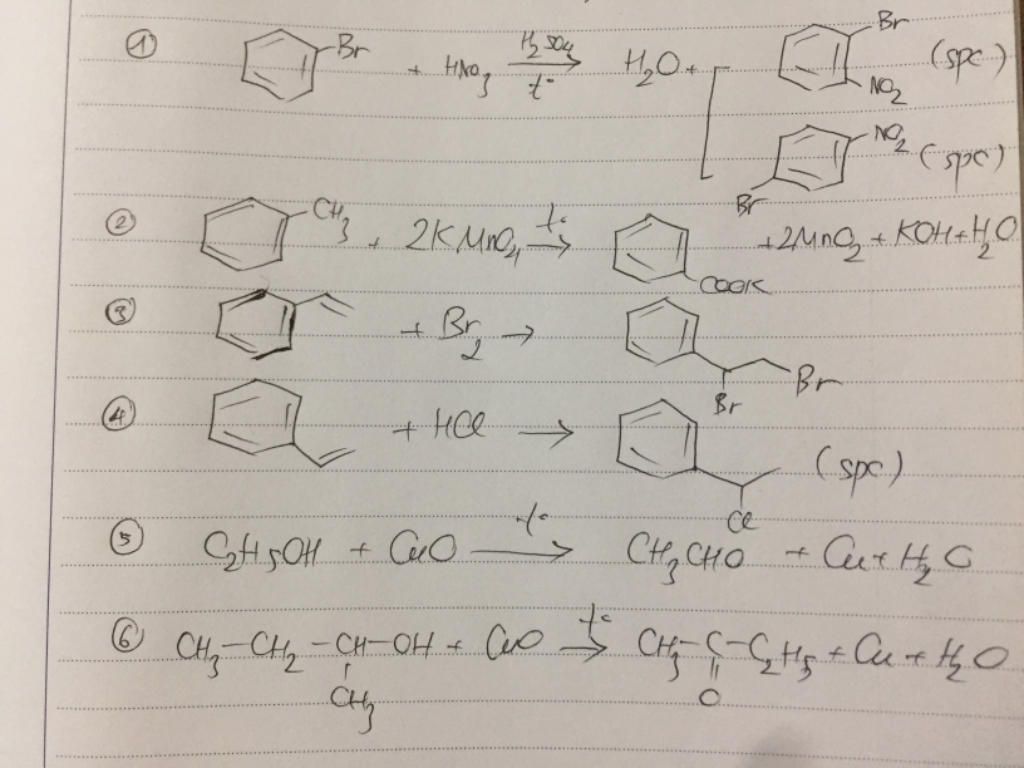 ① Br + HNO3 H2SO4 t° → H2O + Br NO2 (spc)
NO2 Br (spc)
② CH3 + 2KMnO4 t° → COOK + 2MnO2 + KOH + H2O
③ + Br2 → Br Br
④ + HCl → Cl (spc)
⑤ C2H5OH + CuO t° → CH3CHO + Cu + H2O
⑥ CH3-CH2-CH-OH + CuO t° → CH3-C-C2H5 + Cu + H2O
CH3 O